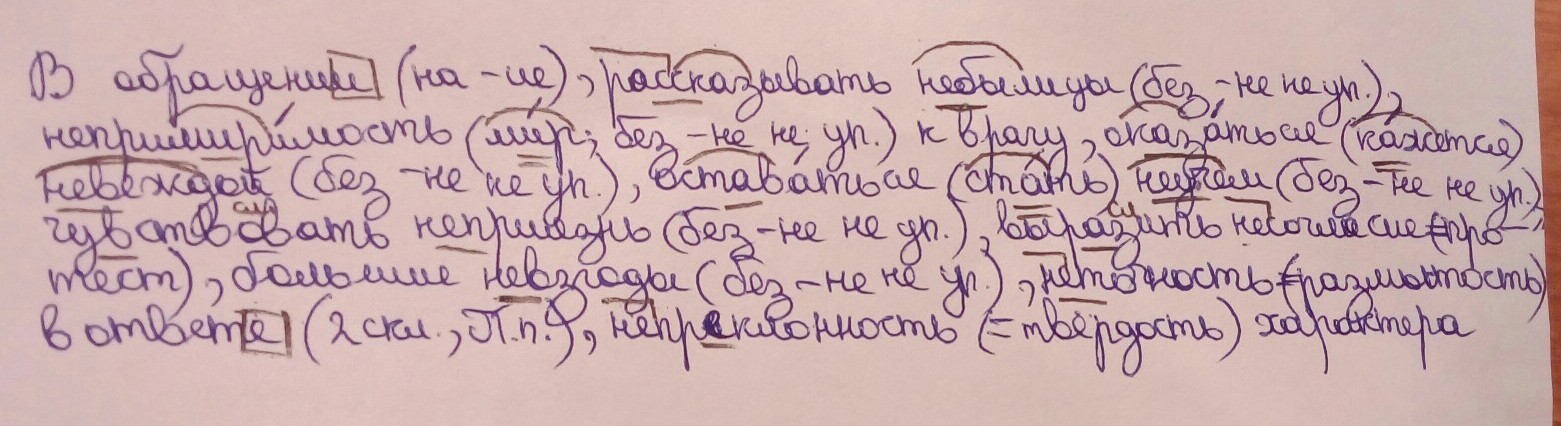 В обращении (на -ие), рассказывать небылицы (без -не не уп.),
непримиримость (мир; без -не не уп.) к врагу, оказаться (кажется)
невеждой (без -не не уп.), оставаться (стать) неучем (без -не не уп.),
чувствовать неприязнь (без -не не уп.), выразить несогласие (=про-
тест), большие невзгоды (без -не не уп.), неточность (=размытость)
в ответе (2 скл., П.п.), непреклонность (=твёрдость) характера